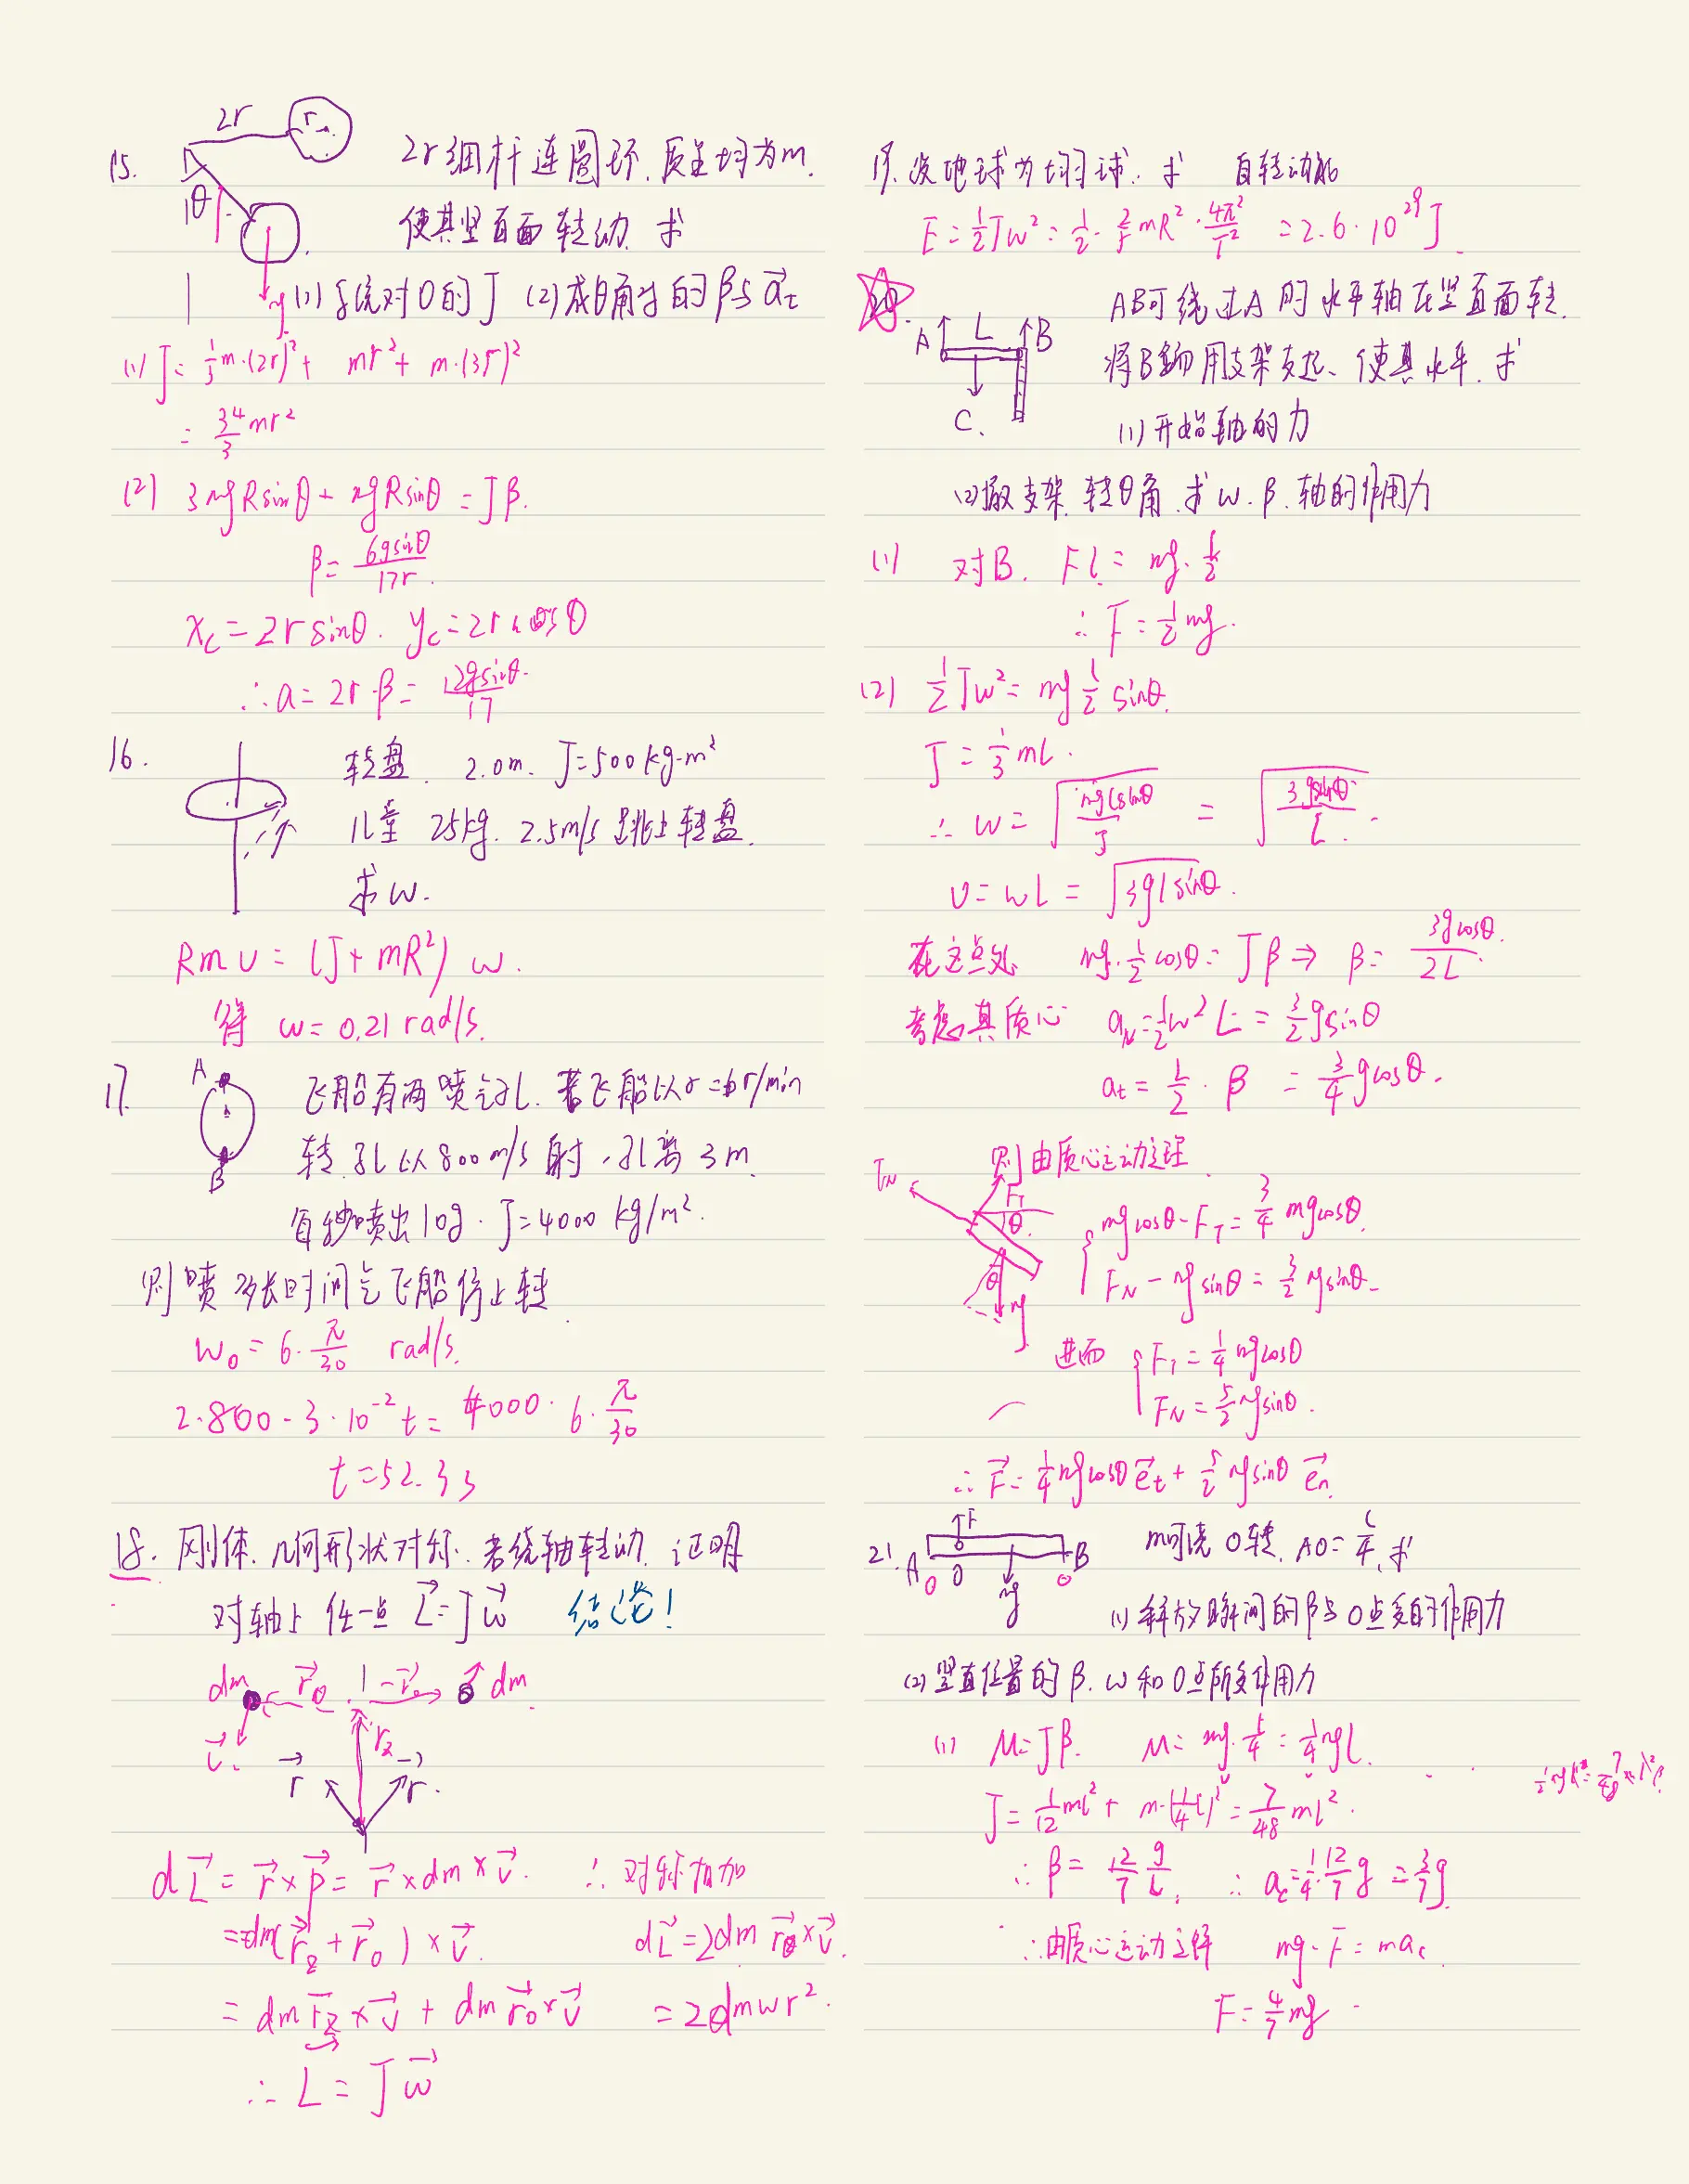 2r
r
15.
2r细杆连圆环.质量均为m.
θ
使其竖直面转动.求
(1)系统对O的J (2)成θ角时的β与a⃗t
(1) J = 1/3 m·(2r)² + mr² + m·(3r)²
= 34/3 mr²
(2) 3mgRsinθ + mgRsinθ = Jβ.
β = 6gsinθ/17r.
xc = 2rsinθ. yc = 2rcosθ
∴a = 2r·β = 12gsinθ/17
16.
转盘. 2.0m. J=500kg·m²
儿童 25kg. 2.5m/s 跳上转盘.
求ω.
Rmv = (J+mR²) ω.
得 ω = 0.21 rad/s.
17.
A
B
飞船有两喷气孔.若飞船以r=6r/min
转.孔以800m/s射,孔离3m.
每秒喷出10g. J=4000 kg/m².
则喷多长时间气飞船停止转.
ω₀ = 6·π/30 rad/s.
2·800·3·10⁻²t = 4000·6·π/30
t=52.3s
18. 刚体.几何形状对称.若绕轴转动.证明
对轴上任一点 L⃗=Jω⃗ 结论!
dm r⃗₀ -r⃗₀ dm
v⃗. rz
r⃗ r⃗.
dL⃗ = r⃗×p⃗ = r⃗×dm×v⃗. ∴对称相加
=dm(r⃗z+r⃗₀)×v⃗. dL⃗=2dm r⃗₀×v⃗.
= dm r⃗z×v⃗ + dm r⃗₀×v⃗ = 2dmωr².
∴ L⃗ = Jω⃗
19. 设地球为均匀球.求 自转动能
E = 1/2 Jω² = 1/2·2/5 mR²·4π²/T² = 2.6·10²⁹J.
20.
A L B
C.
AB可绕过A的水平轴在竖直面转.
将B端用支架支起、使其水平.求
(1)开始轴的力
(2)撤支架.转θ角.求ω.β.轴的作用力
(1) 对B. Fl = mg·l/2
∴ F = 1/2 mg.
(2) 1/2 Jω² = mg l/2 sinθ.
J = 1/3 ml.
∴ ω = √(mglsinθ/J) = √(3gsinθ/L).
v = ωL = √(3glsinθ).
在这点处 mg·l/2 cosθ = Jβ ⇒ β = 3gcosθ/2L.
考虑其质心 aN = 1/2 ω²L = 3/2 gsinθ
at = L/2·β = 3/4 gcosθ.
则由质心运动定理.
FN FT θ θ mg
{ mgcosθ - FT = 3/4 mgcosθ.
FN - mgsinθ = 3/2 mgsinθ.
进而 { FT = 1/4 mgcosθ
FN = 5/2 mgsinθ.
∴ F⃗ = 1/4 mgcosθ e⃗t + 5/2 mgsinθ e⃗n.
21. A O F mg B
m可绕O转. AO = L/4.求
(1)释放瞬间的β与O点受的作用力
(2)竖直位置的β.ω和O点所受作用力
(1) M=Jβ. M = mg·l/4 = 1/4 mgl.
J = 1/12 ml² + m·(1/4 l)² = 7/48 ml².
∴β = 12/7 g/L. ∴ac = 1/4·12/7 g = 3/7 g.
∴由质心运动定律 mg - F = mac
F = 4/7 mg.